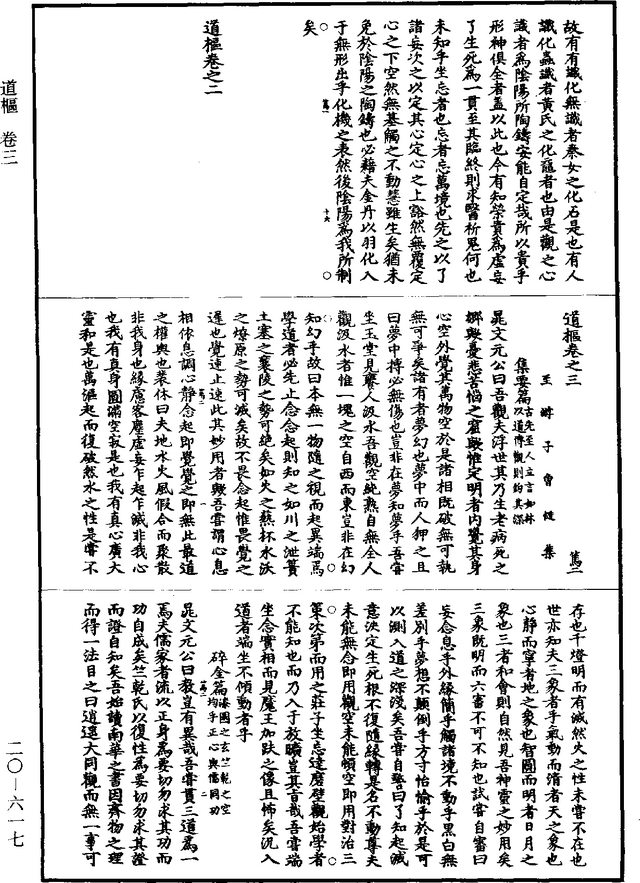 道樞 卷三
故有有識化無識者秦女之化石是也有人
識化蟲識者黃氏之化黿者也由是觀之心
識者為陰陽所陶鑄安能自定哉所以貴乎
形神俱全者蓋以此也今有知榮貴為虛妄
了生死為一貫至其臨終則求醫祈鬼何也
未知乎坐忘者也忘者忘萬境也先之以了
諸妄次之以定其心定心之上豁然無覆定
心之下空然無基觸之不動慧雖生矣猶未
免於陰陽之陶鑄也必藉夫金丹以羽化入
于無形出乎化機之表然後陰陽為我所制
矣
道樞卷之二
道樞卷之三
至游子曾慥集
集要篇 古先至人立言如林以道傳觀則鈞其深
晁文元公曰吾觀夫浮世其乃生老病死之
鄉歟憂悲苦惱之窟歟惟定明者內覺其身
心空外覺其萬物空於是諸相既破無可執
無可爭矣諸有者夢幻也夢中而人狎之且
曰夢中摶必無傷也豈非在夢知夢乎吾嘗
坐玉堂見人汲水吾觀空純熟自無全人
觀汲水者惟一塊之空自西而東豈非在幻
知幻乎故曰本無一物隨之視而起異端焉
學道者必先止念念起則知之如川之泄簣
土塞之襄陵之勢可絕矣如火之爇杯水沃
之燎原之勢可滅矣故不畏念起惟畏覺之
遲也覺速止速此其妙用者歟吾嘗謂心息
相依息調心靜念起即覺覺之即無此最道
之權輿也裴休曰夫地水火風假合而聚散
非我身也緣慮客塵虛妄乍起乍滅非我心
也我有真身圓滿空寂是也我有真心廣大
靈和是也萬漚起而復破然水之性是嘗不
存也千燈明而有滅然火之性未嘗不在也
世亦知夫三象者乎氣動而清者天之象也
心靜而寧者地之象也智圓而明者日月之
象也三者和會則自然見吾神靈之妙用矣
三象既明而六審不可不知也試嘗自審曰
妄念息乎外緣簡乎觸諸境不動乎黑白無
差別乎夢想不顛倒乎方寸怡愉乎於是可
以測入道之深淺矣吾嘗自警曰了知起滅
意決定生死根不復隨緣轉是名不動尊夫
未能無念即用觀空未能頓空即用對治三
策次第而用之莊子坐忘達磨壁觀始學者
不能知也而乃入于放曠豈其旨哉吾嘗端
坐念實相而見魔王加趺之像且怖矣況入
道者端坐不傾動者乎
碎金篇 漆園之玄竺乾之空均乎正心與儒同功
晁文元公曰教豈有異哉吾嘗貫三道為一
焉夫儒家者流以正身為要切勿求其功而
功自成矣竺乾氏以復性為要切勿求其證
而證自知矣吾始讀南華之書因齊物之理
而得一法目之曰逍遙大同觀而無一事可
二〇—六一七